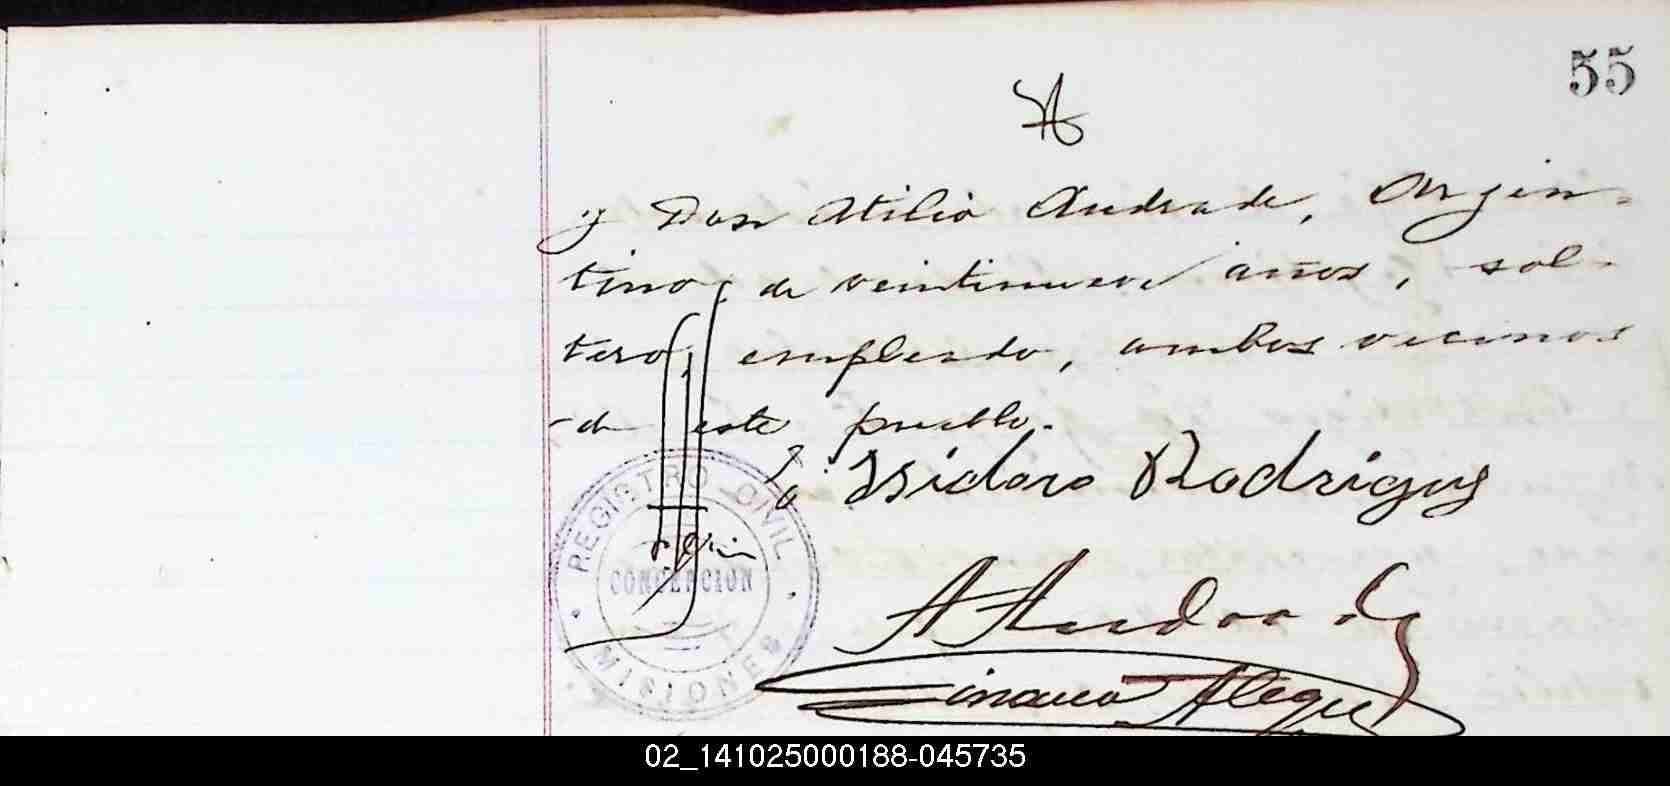 55
y Don Atilio Andrade, Argen-
tino, de veintinueve años, sol-
tero, empleado, ambos vecinos
de este pueblo.
Isidoro Rodrigues
A Andrade
Alegre
REGISTRO CIVIL
CONCEPCION
MISIONES
02_141025000188-045735